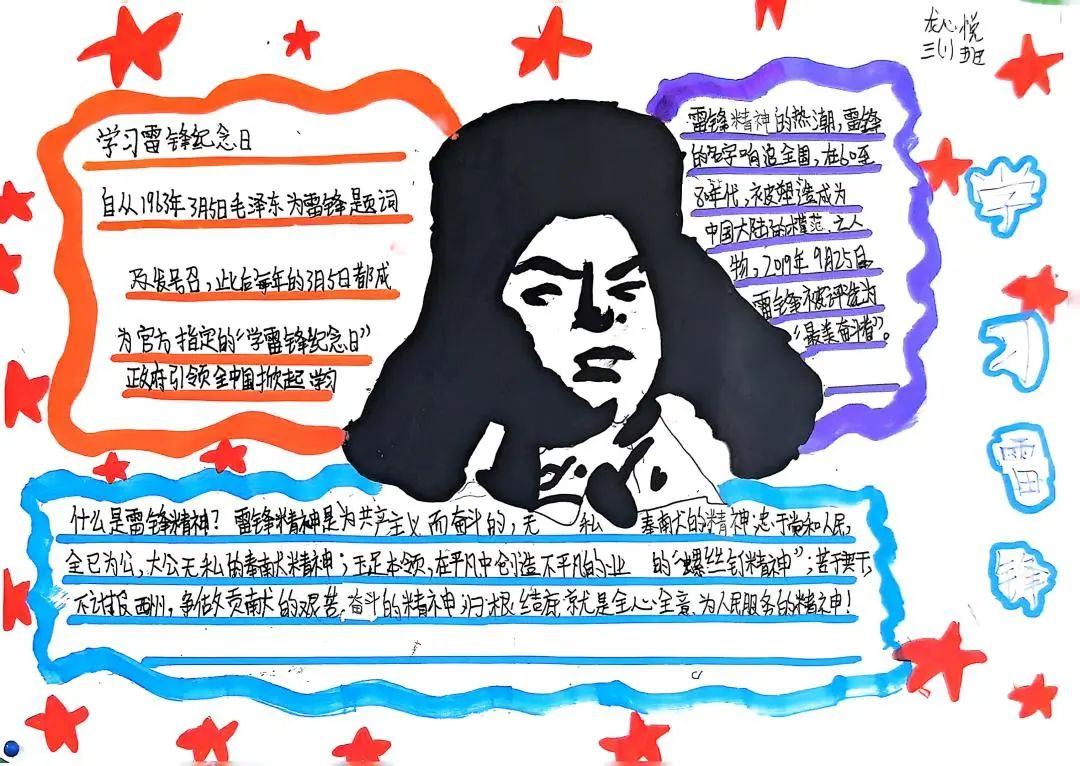 龙心悦
三(1)班
学习雷锋
学习雷锋纪念日
自从1963年3月5日毛泽东为雷锋是题词
及发号召，此后每年的3月5日都成
为官方指定的“学雷锋纪念日”
政府引领全中国掀起学习
雷锋精神的热潮，雷锋
的名字响追全国，在60至
80年代，被塑造成为
中国大陆的模范之人
物，2019年9月25日
雷锋被评选为
“最美奋斗者”。
什么是雷锋精神？雷锋精神是为共产主义而奋斗的，无私奉献的精神；忠于党和人民，
全已为公，大公无私的奉献精神；玉足本领，在平凡中创造不平凡的业的“螺丝钉精神”；苦于要干，
不讨报酬，争做贡献的艰苦奋斗的精神归根结底就是全心全意为人民服务的精神！